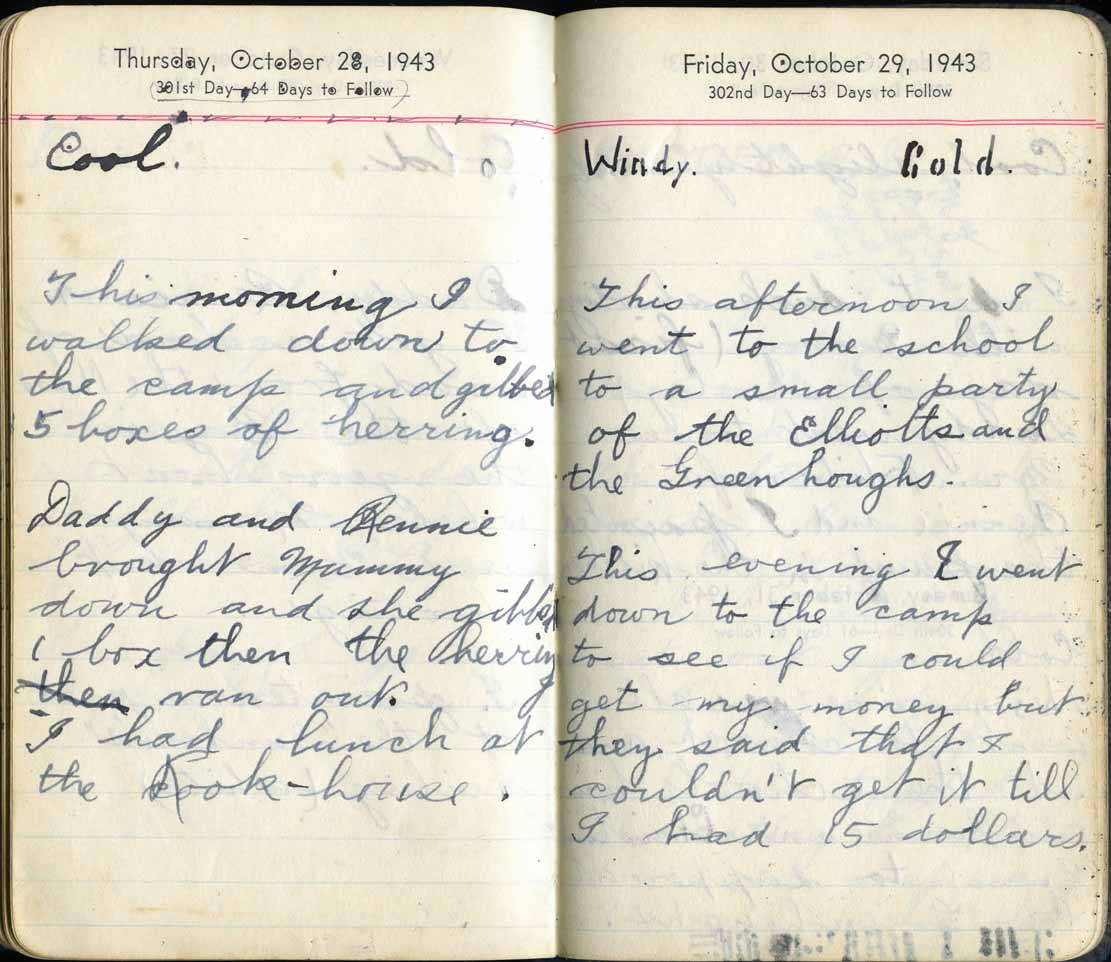 Thursday, October 28, 1943
(301st Day—64 Days to Follow)
Cool.
This morning I
walked down to
the camp and gibbed
5 boxes of herring.
Daddy and Rennie
brought Mummy
down and she gibbed
1 box then the herring
then ran out.
I had lunch at
the Cook-house.
Friday, October 29, 1943
302nd Day—63 Days to Follow
Windy. Cold.
This afternoon I
went to the school
to a small party
of the Elliotts and
the Greenhoughs.
This evening I went
down to the camp
to see if I could
get my money but
they said that I
couldn't get it till
I had 15 dollars.